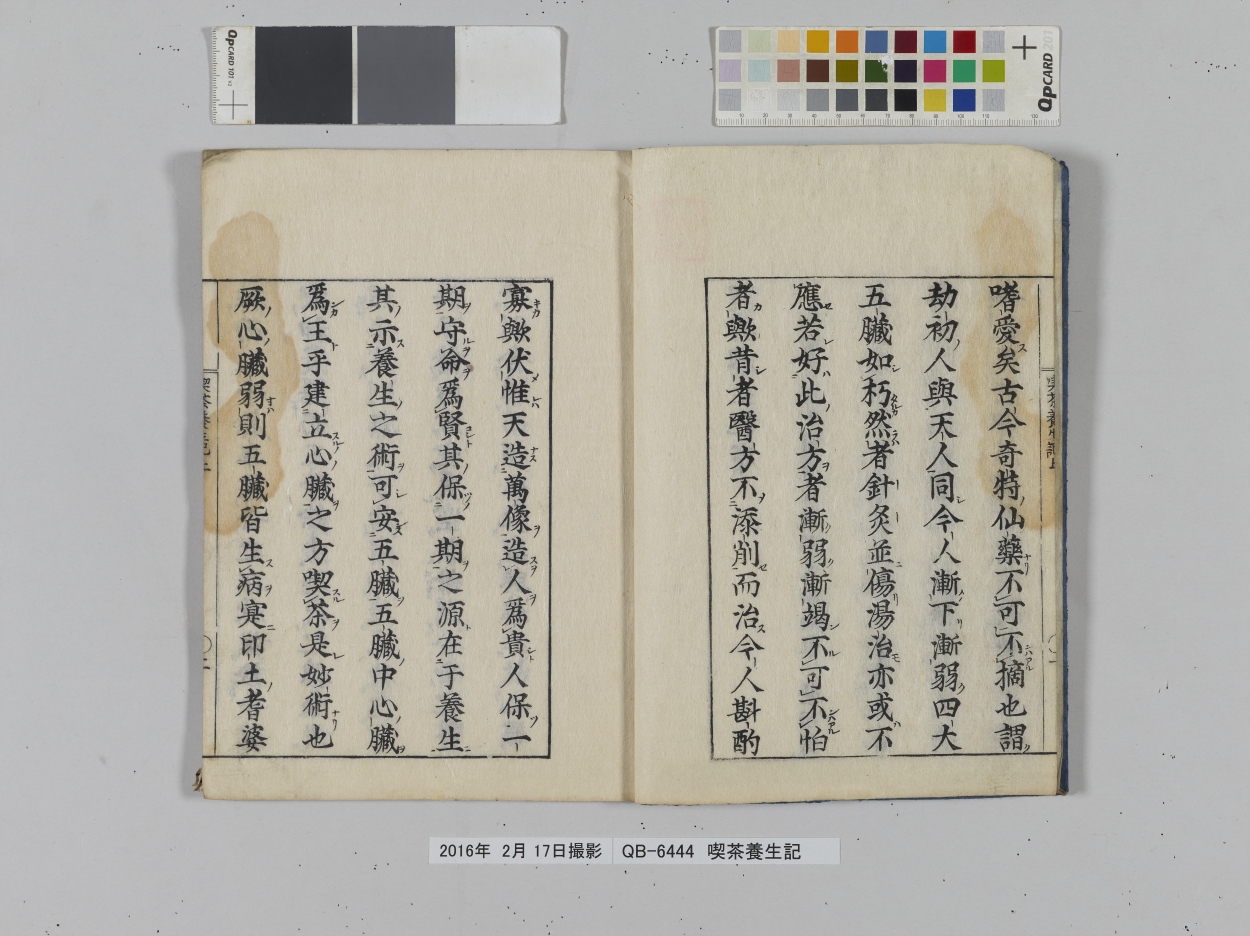 OpCARD 101
OpCARD 201
嗜愛矣古今奇特仙藥不可不摘也謂
劫初人與天人同今人漸下漸弱四大
五臟如朽然者針灸並傷湯治亦或不
應若好此治方者漸弱漸竭不可不怕
者歟昔者醫方不添削而治今人斟酌
寡歟伏惟天造萬像造人爲貴人保一
期守命爲賢其保一期之源在于養生
其示養生之術可安五臟五臟中心臟
爲王乎建立心臟之方喫茶是妙術也
厥心臟弱則五臟皆生病寔印土耆婆
2016年 2月 17日撮影 QB-6444 喫茶養生記